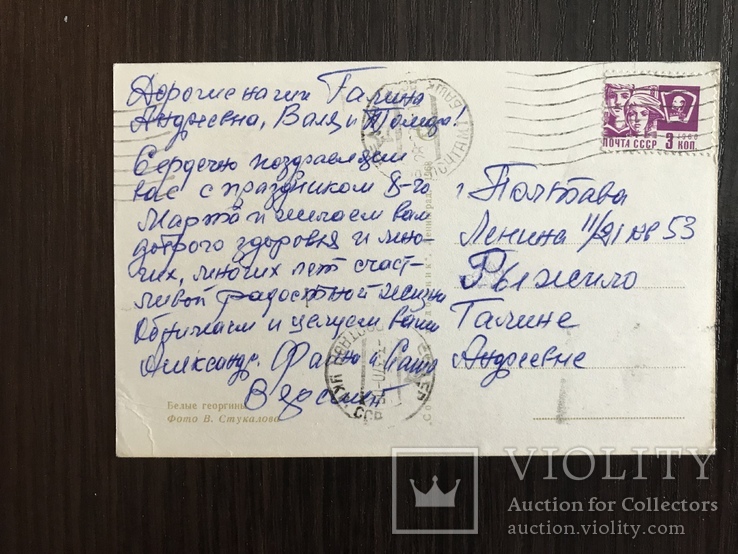 Дорогие наши Галина
Андреевна, Валя и Тамара!
Сердечно поздравляем
вас с праздником 8-го
Марта и желаем вам
доброго здоровья и мно-
гих, многих лет счаст-
ливой радостной жизни
Обнимаем и целуем ваши
Александр. Фаня и Саша
г Полтава
Ленина 11/21 кв 53
Рыжило
Галине
Андреевне
Белые георгины
Фото В. Стукалова
ПОЧТА СССР 3 КОП.
1968
VIOLITY
Auction for Collectors
auction.violity.com